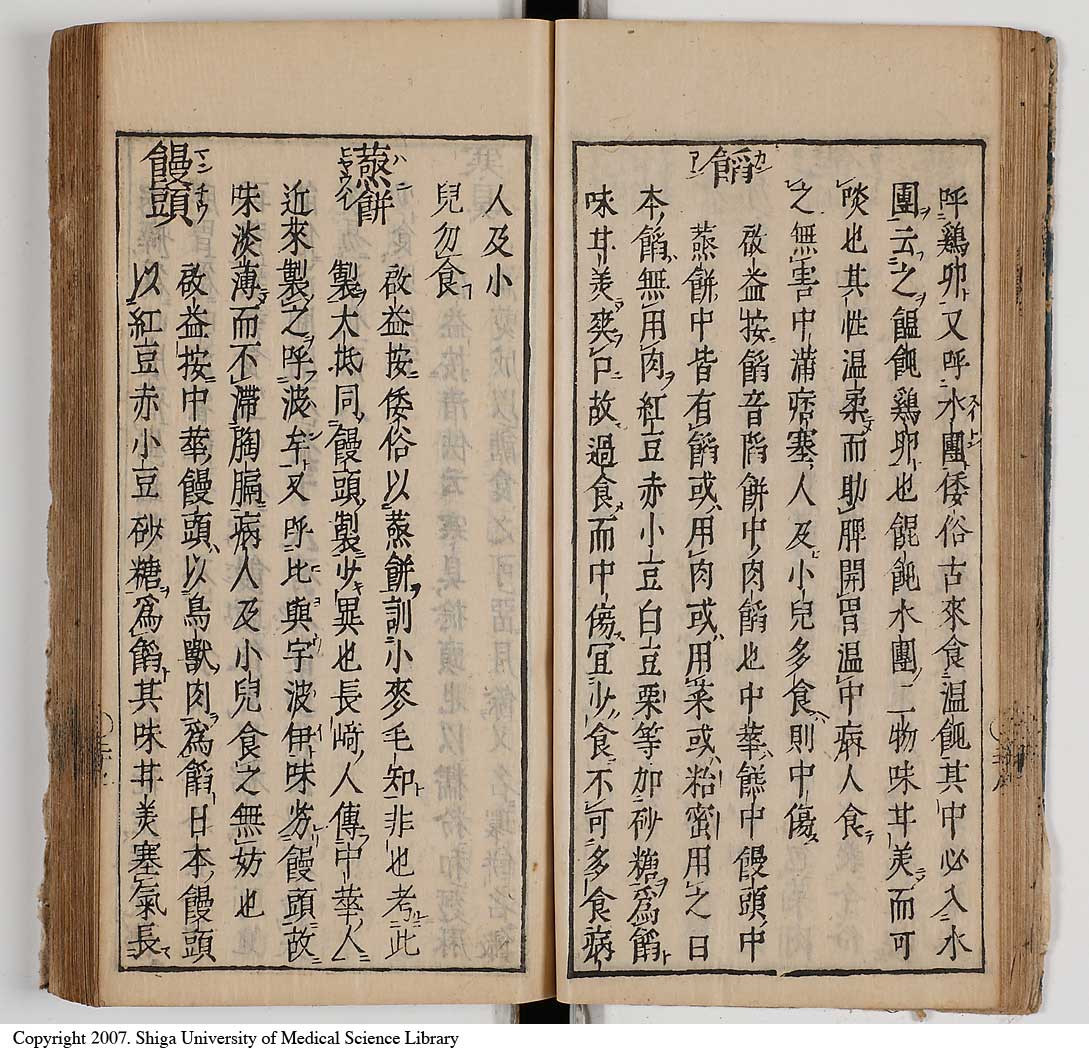 呼鶏卵又呼水團倭俗古來食温飩其中必入水
團云之饂飩鶏卵也餛飩水團二物味甘美而可
啖也其性温柔而助脾開胃温中病人食
之無害中滿痞塞人及小兒多食則中傷
餡 カン アン
啟益按餡音陷餅中肉餡也中華餻中饅頭中
蒸餅中皆有餡或用肉或用菜或粘蜜用之日
本餡無用肉紅豆赤小豆白豆栗等加砂糖為餡
味甘美爽口故過食而中傷宜少食不可多食病
人及小
兒勿食
蒸餅
啟益按倭俗以蒸餅訓小麥毛知非也考此
製大抵同饅頭製少異也長﨑人傳中華人
近來製之呼波牟又呼比與宇波伊味劣饅頭故
味淡薄而不滯胸膈病人及小兒食之無妨也
饅頭 マンチウ
啟益按中華饅頭以鳥獸肉為餡日本饅頭
以紅豆赤小豆砂糖為餡其味甘美塞氣長
Copyright 2007. Shiga University of Medical Science Library